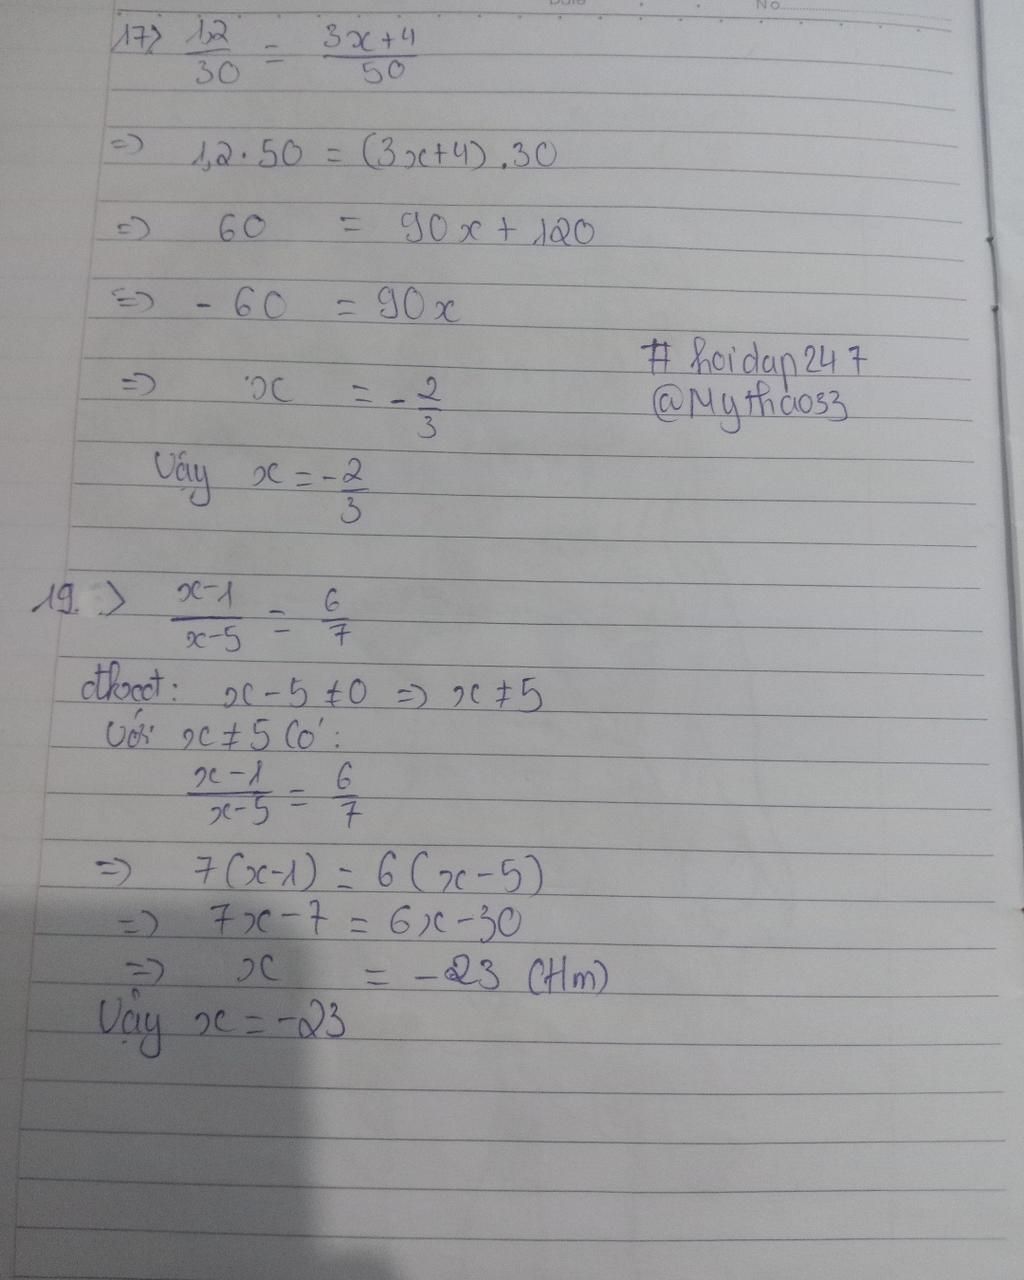 No
17> 1,2/30 = 3x+4/50
=> 1,2 . 50 = (3x+4) . 30
=> 60 = 90x + 120
=> - 60 = 90x
# hoidap247
@Mythao33
=> x = - 2/3
Vậy x = - 2/3
19. > x-1/x-5 = 6/7
đkxđ: x - 5 ≠ 0 => x ≠ 5
Với x ≠ 5 có:
x-1/x-5 = 6/7
=> 7(x-1) = 6(x-5)
=> 7x - 7 = 6x - 30
=> x = -23 (tm)
Vậy x = -23